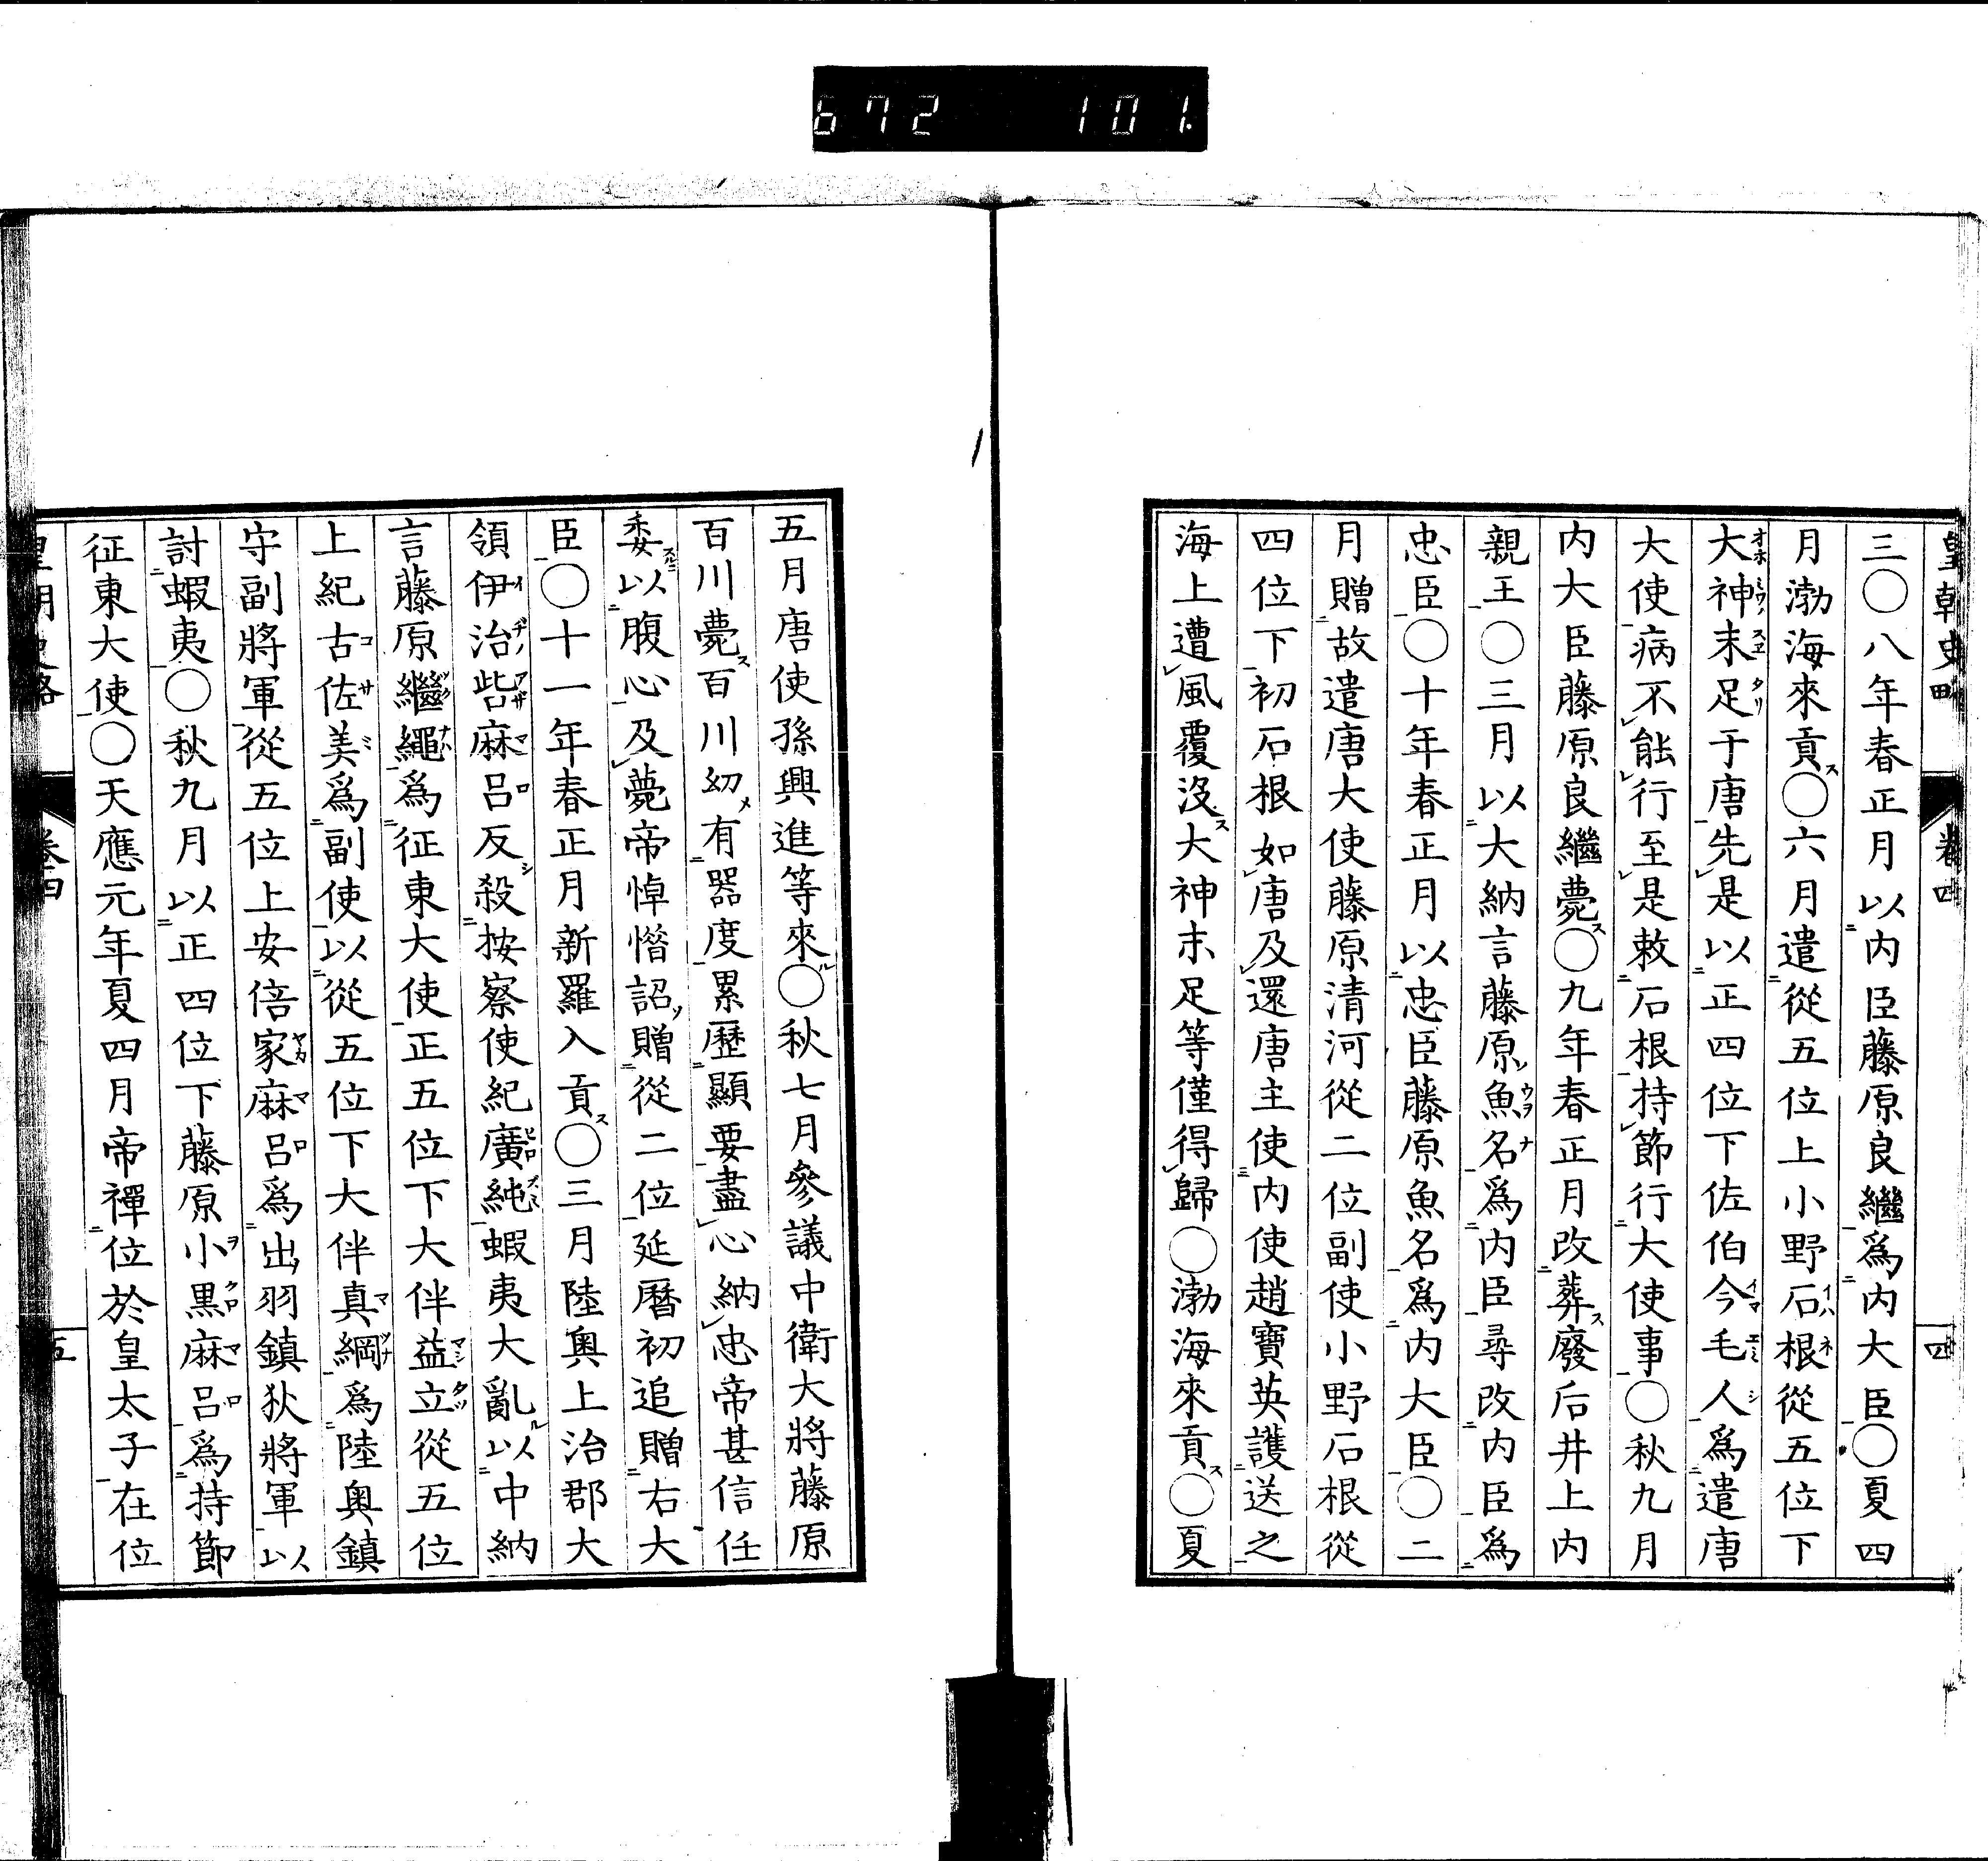 672 101
三〇八年春正月以内臣藤原良繼爲内大臣〇夏四
月渤海來貢〇六月遣從五位上小野石根從五位下
大神末足于唐先是以正四位下佐伯今毛人爲遣唐
大使病不能行至是敕石根持節行大使事〇秋九月
内大臣藤原良繼薨〇九年春正月改葬廢后井上内
親王〇三月以大納言藤原魚名爲内臣尋改内臣爲
忠臣〇十年春正月以忠臣藤原魚名爲内大臣〇二
月贈故遣唐大使藤原清河從二位副使小野石根從
四位下初石根如唐及還唐主使内使趙寶英護送之
海上遭風覆没大神末足等僅得歸〇渤海來貢〇夏
五月唐使孫興進等來〇秋七月參議中衛大將藤原
百川薨百川幼有器度累歷顯要盡心納忠帝甚信任
委以腹心及薨帝悼惜詔贈從二位延曆初追贈右大
臣〇十一年春正月新羅入貢〇三月陸奧上治郡大
領伊治呰麻呂反殺按察使紀廣純蝦夷大亂以中納
言藤原繼繩爲征東大使正五位下大伴益立從五位
上紀古佐美爲副使以從五位下大伴真綱爲陸奧鎮
守副將軍從五位上安倍家麻呂爲出羽鎮狄將軍以
討蝦夷〇秋九月以正四位下藤原小黒麻呂爲持節
征東大使〇天應元年夏四月帝禪位於皇太子在位